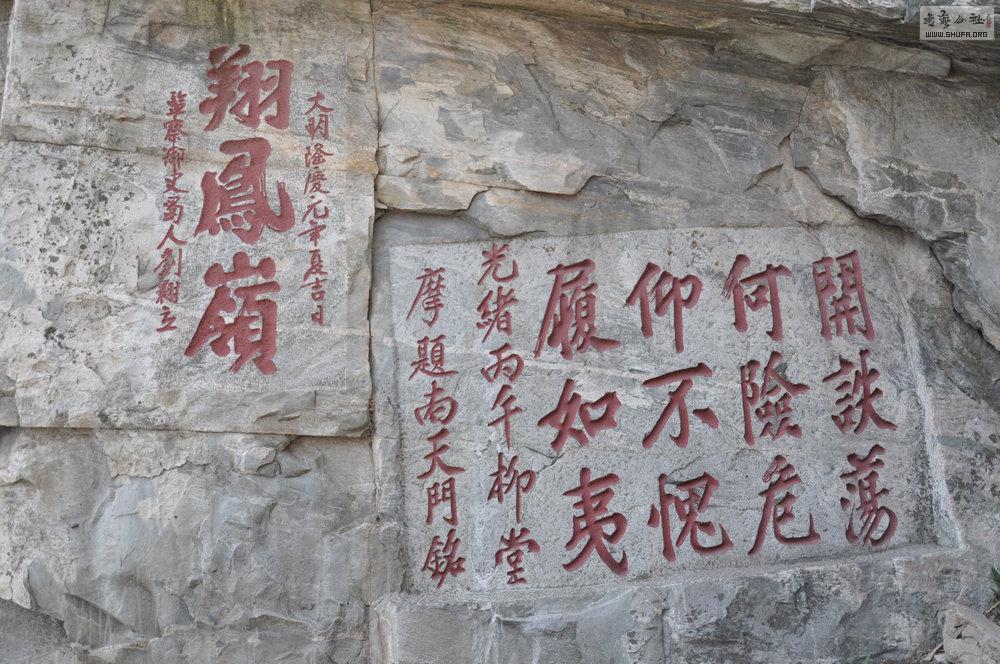 開詄蕩
何險危
仰不愧
履如夷
光緒丙午柳堂
摩題南天門銘
大明隆慶元年夏吉日
翔鳳嶺
監察御史蜀人劉翾立
書藝公社
WWW.SHUFA.ORG